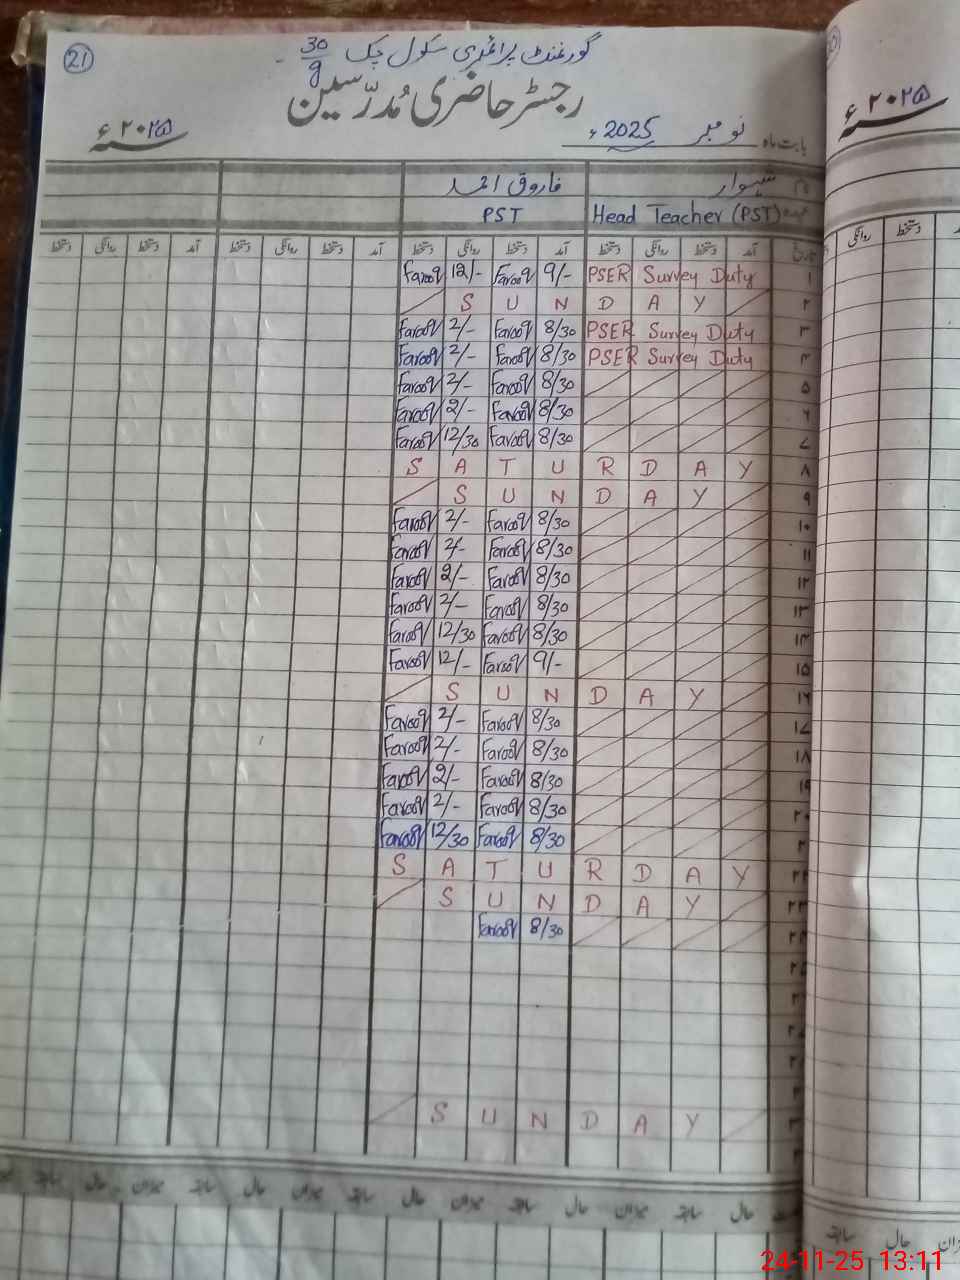 21
گورنمنٹ پرائمری سکول چک 30/9
رجسٹر حاضری مُدرّسین
سنہ ۲۰۲۵ء
بابت ماہ نومبر 2025ء
سنہ ۲۰۲۵ء
فاروق احمد
PST Head Teacher (PST)
آمد دستخط روانگی دستخط آمد دستخط روانگی دستخط آمد دستخط روانگی دستخط آمد دستخط روانگی دستخط
۱ PSER Survey Duty 9/- Farooq 12/- Farooq
۲ S U N D A Y
۳ PSER Survey Duty 8/30 Farooq 2/- Farooq
۴ PSER Survey Duty 8/30 Farooq 2/- Farooq
۵ 8/30 Farooq 2/- Farooq
۶ 8/30 Farooq 2/- Farooq
۷ 8/30 Farooq 12/30 Farooq
۸ S A T U R D A Y
۹ S U N D A Y
۱۰ 8/30 Farooq 2/- Farooq
۱۱ 8/30 Farooq 2/- Farooq
۱۲ 8/30 Farooq 2/- Farooq
۱۳ 8/30 Farooq 2/- Farooq
۱۴ 8/30 Farooq 12/30 Farooq
۱۵ 9/- Farooq 12/- Farooq
۱۶ S U N D A Y
۱۷ 8/30 Farooq 2/- Farooq
۱۸ 8/30 Farooq 2/- Farooq
۱۹ 8/30 Farooq 2/- Farooq
۲۰ 8/30 Farooq 2/- Farooq
8/30 Farooq 12/30 Farooq
۲۲ S A T U R D A Y
۲۳ S U N D A Y
۲۴ 8/30 Farooq
۲۵
S U N D A Y
حال سابقہ میزان حال سابقہ میزان حال سابقہ میزان حال سابقہ میزان حال سابقہ
سابقہ حال میزان
24-11-25 13:11